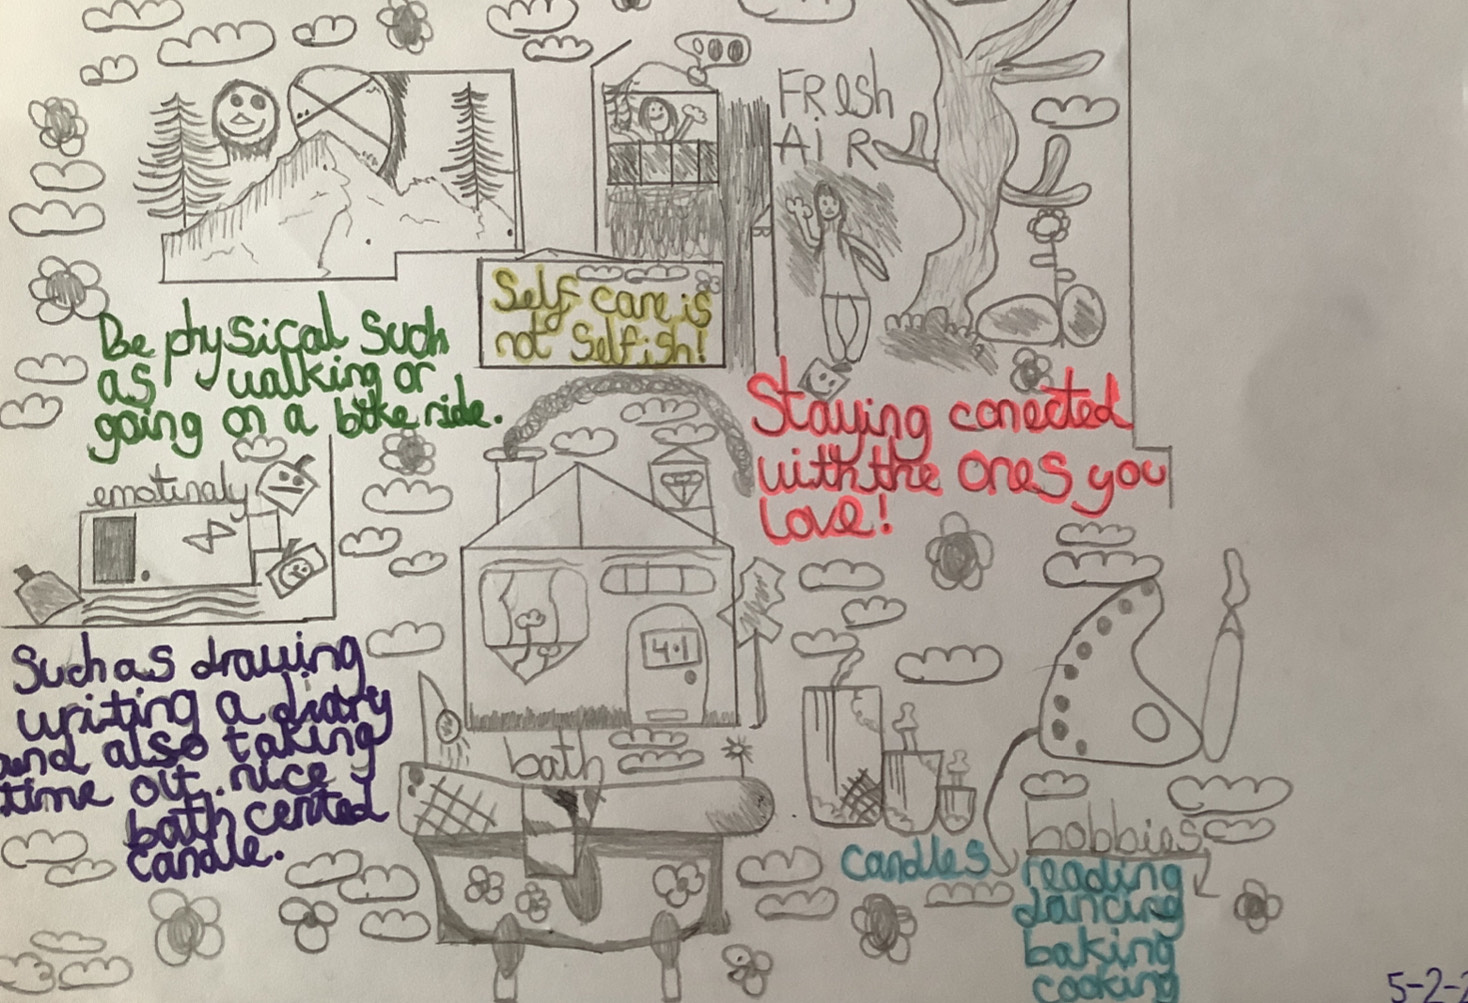 FREsh
AiR
Self care is
not Selfish!
Be physical Such
as walking or
going on a bike ride.
Staying conected
with the ones you
Love!
emotinaly
Such as drawing
writing a diary
and also taking
time out. nice
bath cented
candle.
4.1
bath
candles
hobbies
reading
dancing
baking
cooking
5-2-2